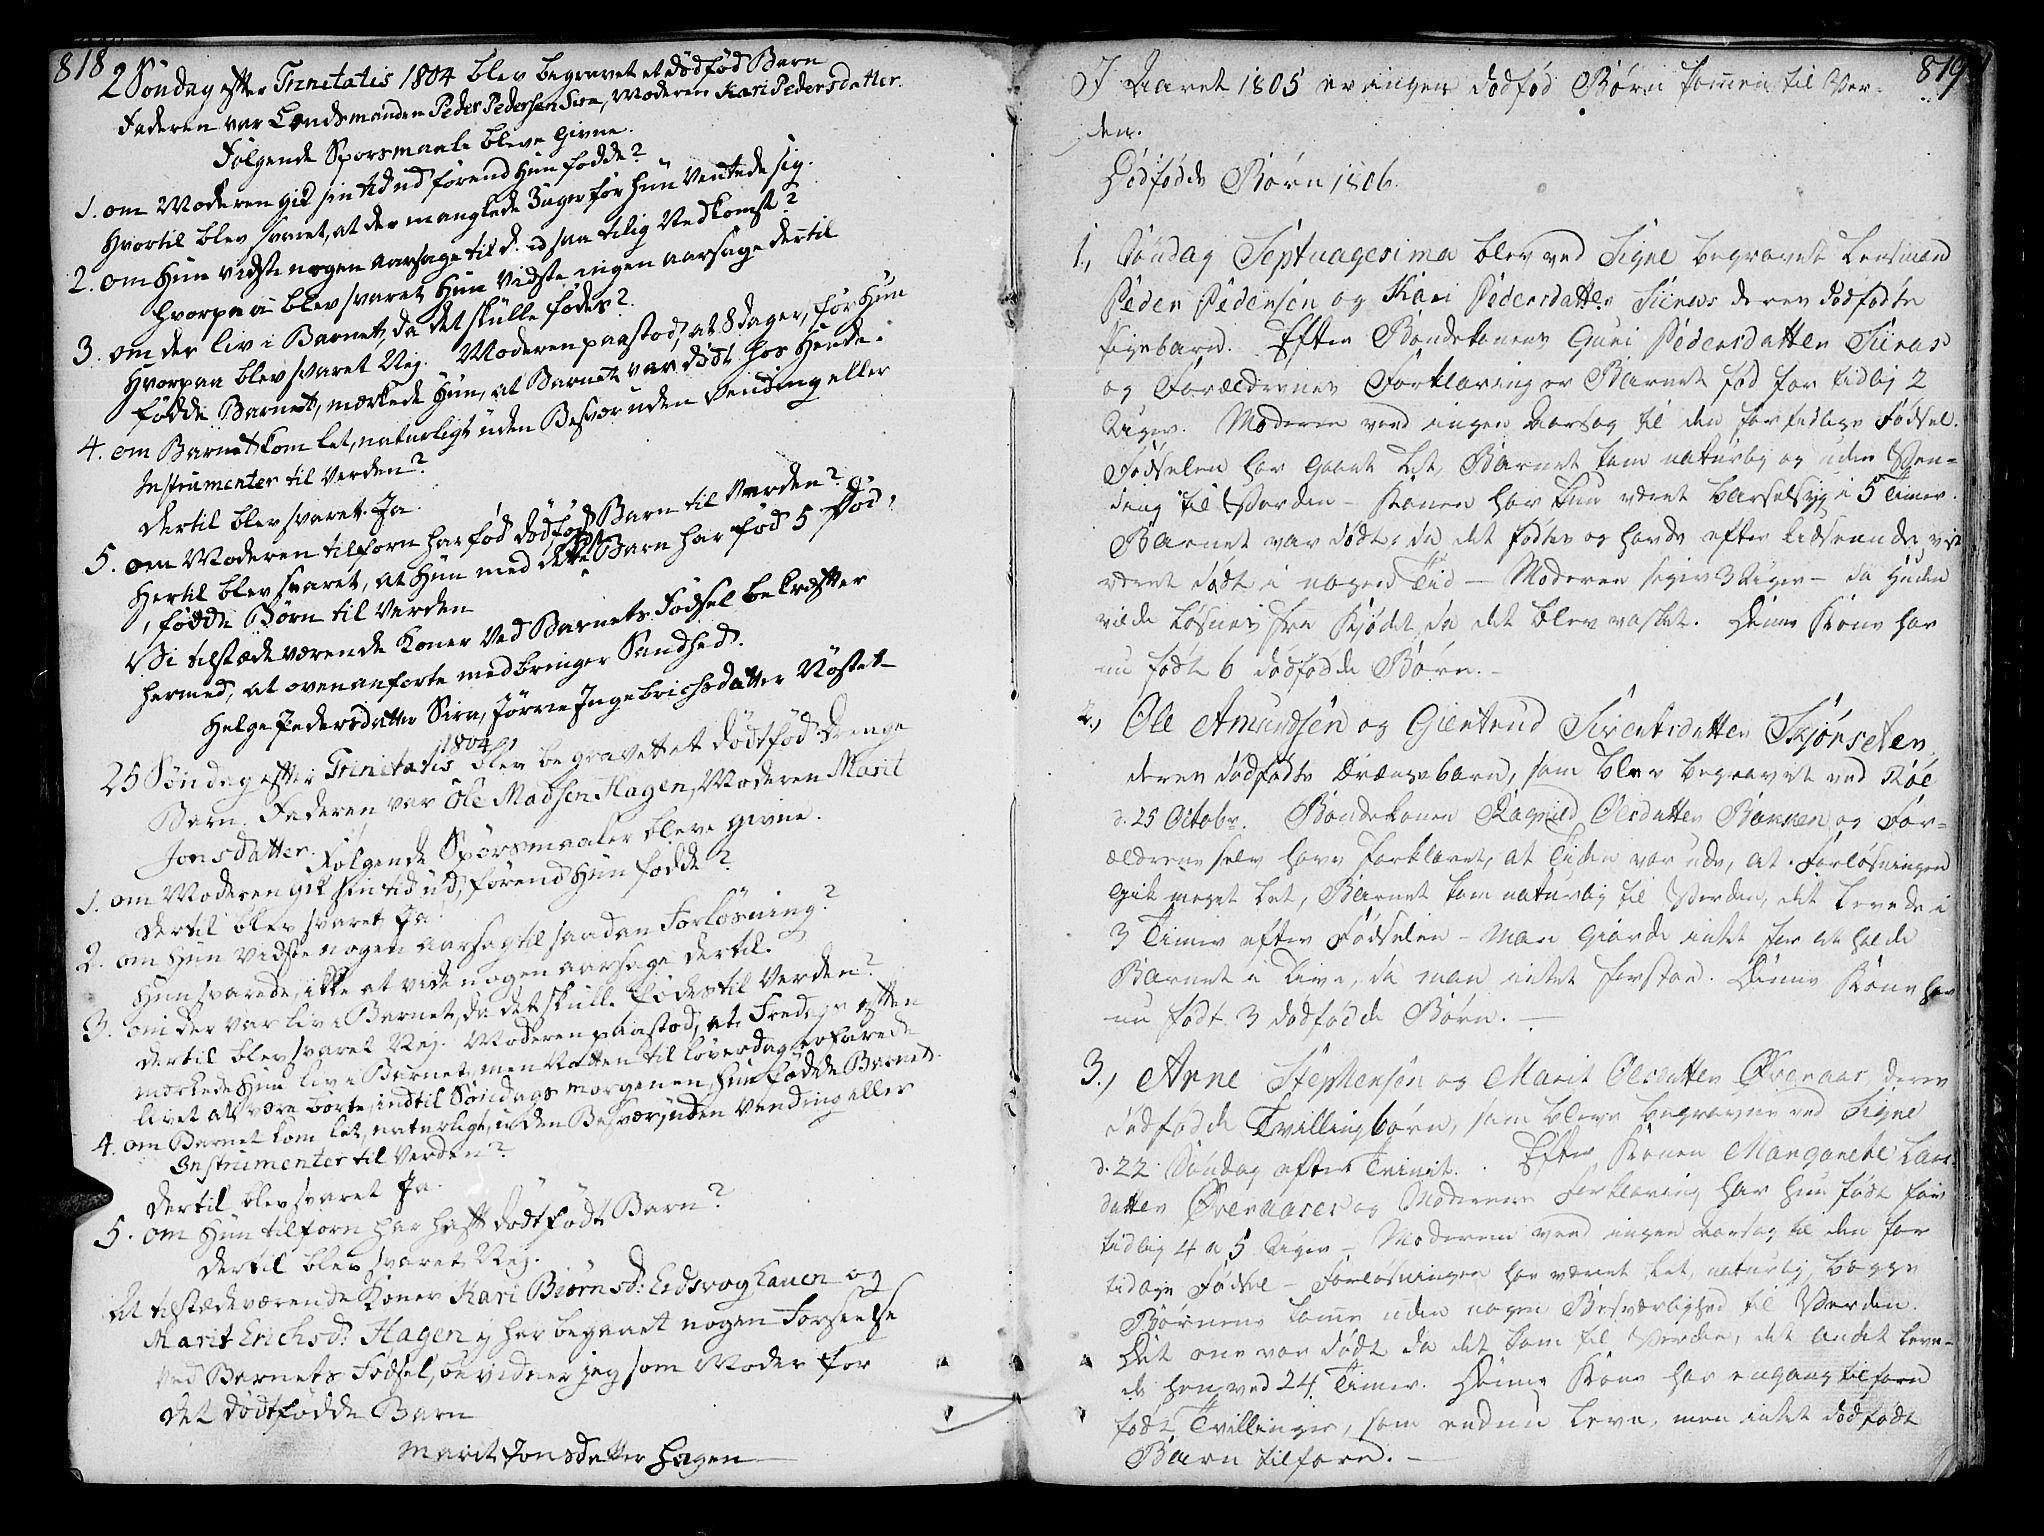 818
2 Søndag efter Trinitatis 1804 blev begravet et dødfød Barn
Faderen var Lendsmanden Peder Pedersen Sira, Moderen Kari Pedersdatter.
Følgende Sporsmaale bleve givne.
1. om Moderen gik sin tid ud førend Hun fødde?
Hvortil blev svaret, at der manglede 3 uger før hun Ventede sig.
2. om Hun vidste nogen aarsage til d. saa tilig Nedkomst?
hvorpaa blev svaret Hun Vidste ingen aarsage dertil
3. om der liv i Barnet, da det skulle fødes?
Hvorpaa blev svaret Nej. Moderen paastod, at 8 dager, før Hun
fødde Barnet, mærkede Hun, at Barnet var dødt hos Hende.
4. om Barnet kom let, naturligt uden Besvær uden Vending eller
Instrumenter til Verden?
dertil blev svaret Ja.
5. om Moderen tilforn har fød dødfød Barn til Verden?
Hertil blev svaret, at Hun med dette Barn har fød 5 død,
, fødde Børn til Verden
Vi tilstædeværende Koner Ved Barnets Fødsel bekræfter
hermed, at ovenanførte medbringer Sandhed.
Helge Pedersdatter Sira, Jørrie Ingebrichsdatter Nøstet
1804
25 Søndag efter Trinitatis blev begravet et dødtfød Drenge
Barn. Faderen var Ole Madsen Hagen, Moderen Marit
Jonsdatter. Følgende Spørsmaaler bleve givne.
1. om Moderen gik sin tid ud, førend Hun fødde?
dertil blev svaret Ja.
2. om Hun Vidste nogen aarsag til saadan Forløsning?
Hun svarede, ikke at vide nogen aarsage dertil.
3. om der var liv i Barnet, da det skulle fødes til Verden?
dertil blev svaret Nej. Moderen paastod, at Fredags efften
mærkede Hun liv i Barnet, men Natten til løverdag erfarede
livet at være borte, indtil Søndags morgenen, hun fødde Barnet.
4. om Barnet kom let, naturligt, uden Besvær, uden Vending eller
Instrumenter til Verden?
dertil blev svaret Ja.
5. om Hun tilforn har haft dødtfødt Barn?
dertil blev svaret Nej.
At tilstædeværende Koner Kari Biørnsd: Eidsvog Lauen og
Marit Erichsd: Hagen ej har begaaet nogen Forseelse
ved Barnets Fødsel, bevidner jeg som Moder for
det dødtfødde Barn
Marit Jonsdatter Hagen
819
I Aaret 1805 er ingen dødfød Børn kommen til Ver-
den.
Dødfødde Børn 1806.
1., Søndag Septuagesima blev ved Signe begravet Lensmand
Peder Pedersen og Kari Pedersdatter Siiras deres dødfødte
Pigebarn. Efter Bondekonens Guri Pedersdatter Siiras
og Forældrenes Forklaring er Barnet fød for tidlig 2
Uger. Moderen veed ingen Aarsag til den for tidlige Fødsel.
Fødselen har gaaet let, Barnet kom naturlig og uden Ven-
ding til Verden - Konen har kun været barselsyg i 5 Timer.
Barnet var dødt, da det fødtes og havde efter Udseende vist
været dødt i nogen Tid - Moderen siger 3 Uger - da Huden
vilde løsnes fra Kjødet, da det blev vasket. Denne Kone har
nu født 6 dødfødde Børn. -
2., Ole Amundsen og Giertrud Sivertsdatter Skjørseter,
deres dødfødte Drængebarn, som blev begravet ved Røe
d. 25 Octobr. Bondekonen Ragnild Olesdatter Bakken og For-
ældrene selv have forklaret, at Tiden var ude, at Forløsningen
gik meget let, Barnet kom naturlig til Verden, det levede i
3 Timer efter Fødselen - Man giorde intet for at holde
Barnet i Live, da man intet forstod. Denne Kone har
nu født 3 dødfødde Børn. -
3., Arne Stephensen og Marit Olesdatter Øveraas, deres
dødfødde Tvillingbørn, som bleve begravne ved Signe
d. 22 Søndag efter Trinit. Efter Konen Margarethe Lars-
datter Øveraases og Moderens Forklaring har hun født for
tidlig 4 a 5 Uger - Moderen veed ingen Aarsag til den for
tidlige Fødsel - Forløsningen har været let, naturlig, begge
Børnene komme uden nogen Besværlighed til Verden.
Det ene var dødt da det kom til Verden, det andet leve-
de henved 24 Timer. Denne Kone har engang tilforn
født Tvillinger, som endnu leve, men intet dødfødt
Barn tilforn. -